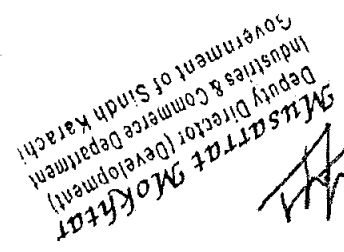 Musarrat Mokhtar
Deputy Director (Development)
Industries & Commerce Department
Government of Sindh Karachi